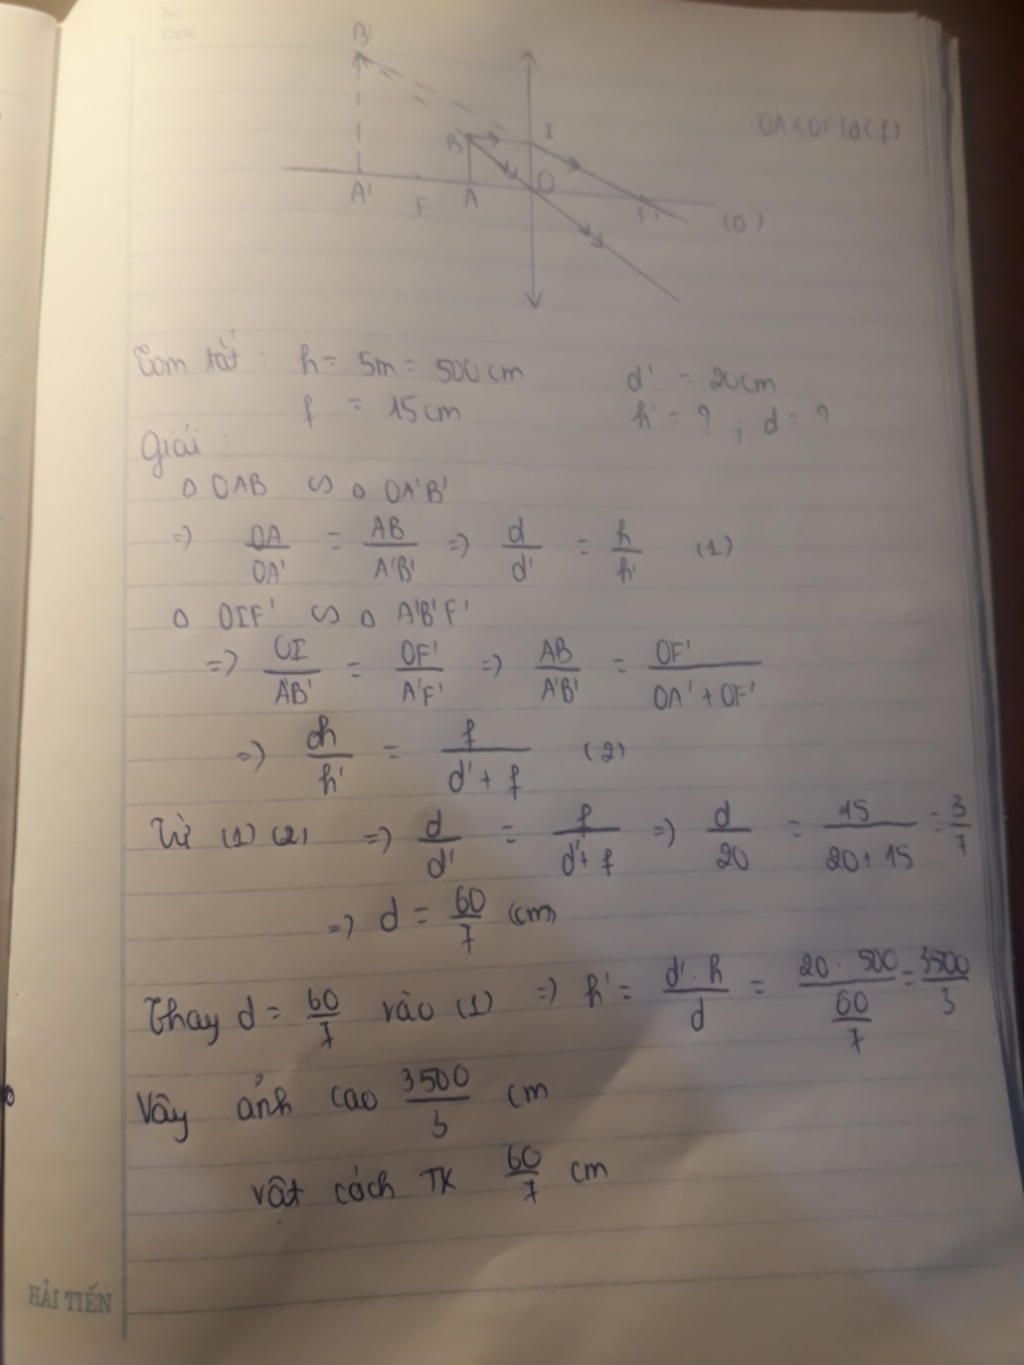 No.
Date
B'
OA < OF (d < f)
B I
A' F A O F' (Δ)
Tóm tắt : h = 5m = 500 cm d' = 20cm
f = 15 cm h' = ? ; d = ?
Giải :
Δ OAB ∽ Δ OA'B'
=> OA/OA' = AB/A'B' => d/d' = h/h' (1)
Δ OIF' ∽ Δ A'B'F'
=> OI/A'B' = OF'/A'F' => AB/A'B' = OF'/OA' + OF'
=> h/h' = f/d' + f (2)
Từ (1) (2) => d/d' = f/d' + f => d/20 = 15/20 + 15 = 3/7
=> d = 60/7 (cm)
Thay d = 60/7 vào (1) => h' = d' . h/d = 20 . 500/60/7 = 3500/3
Vây ảnh cao 3500/3 cm
vật cách TK 60/7 cm
HẢI TIẾN